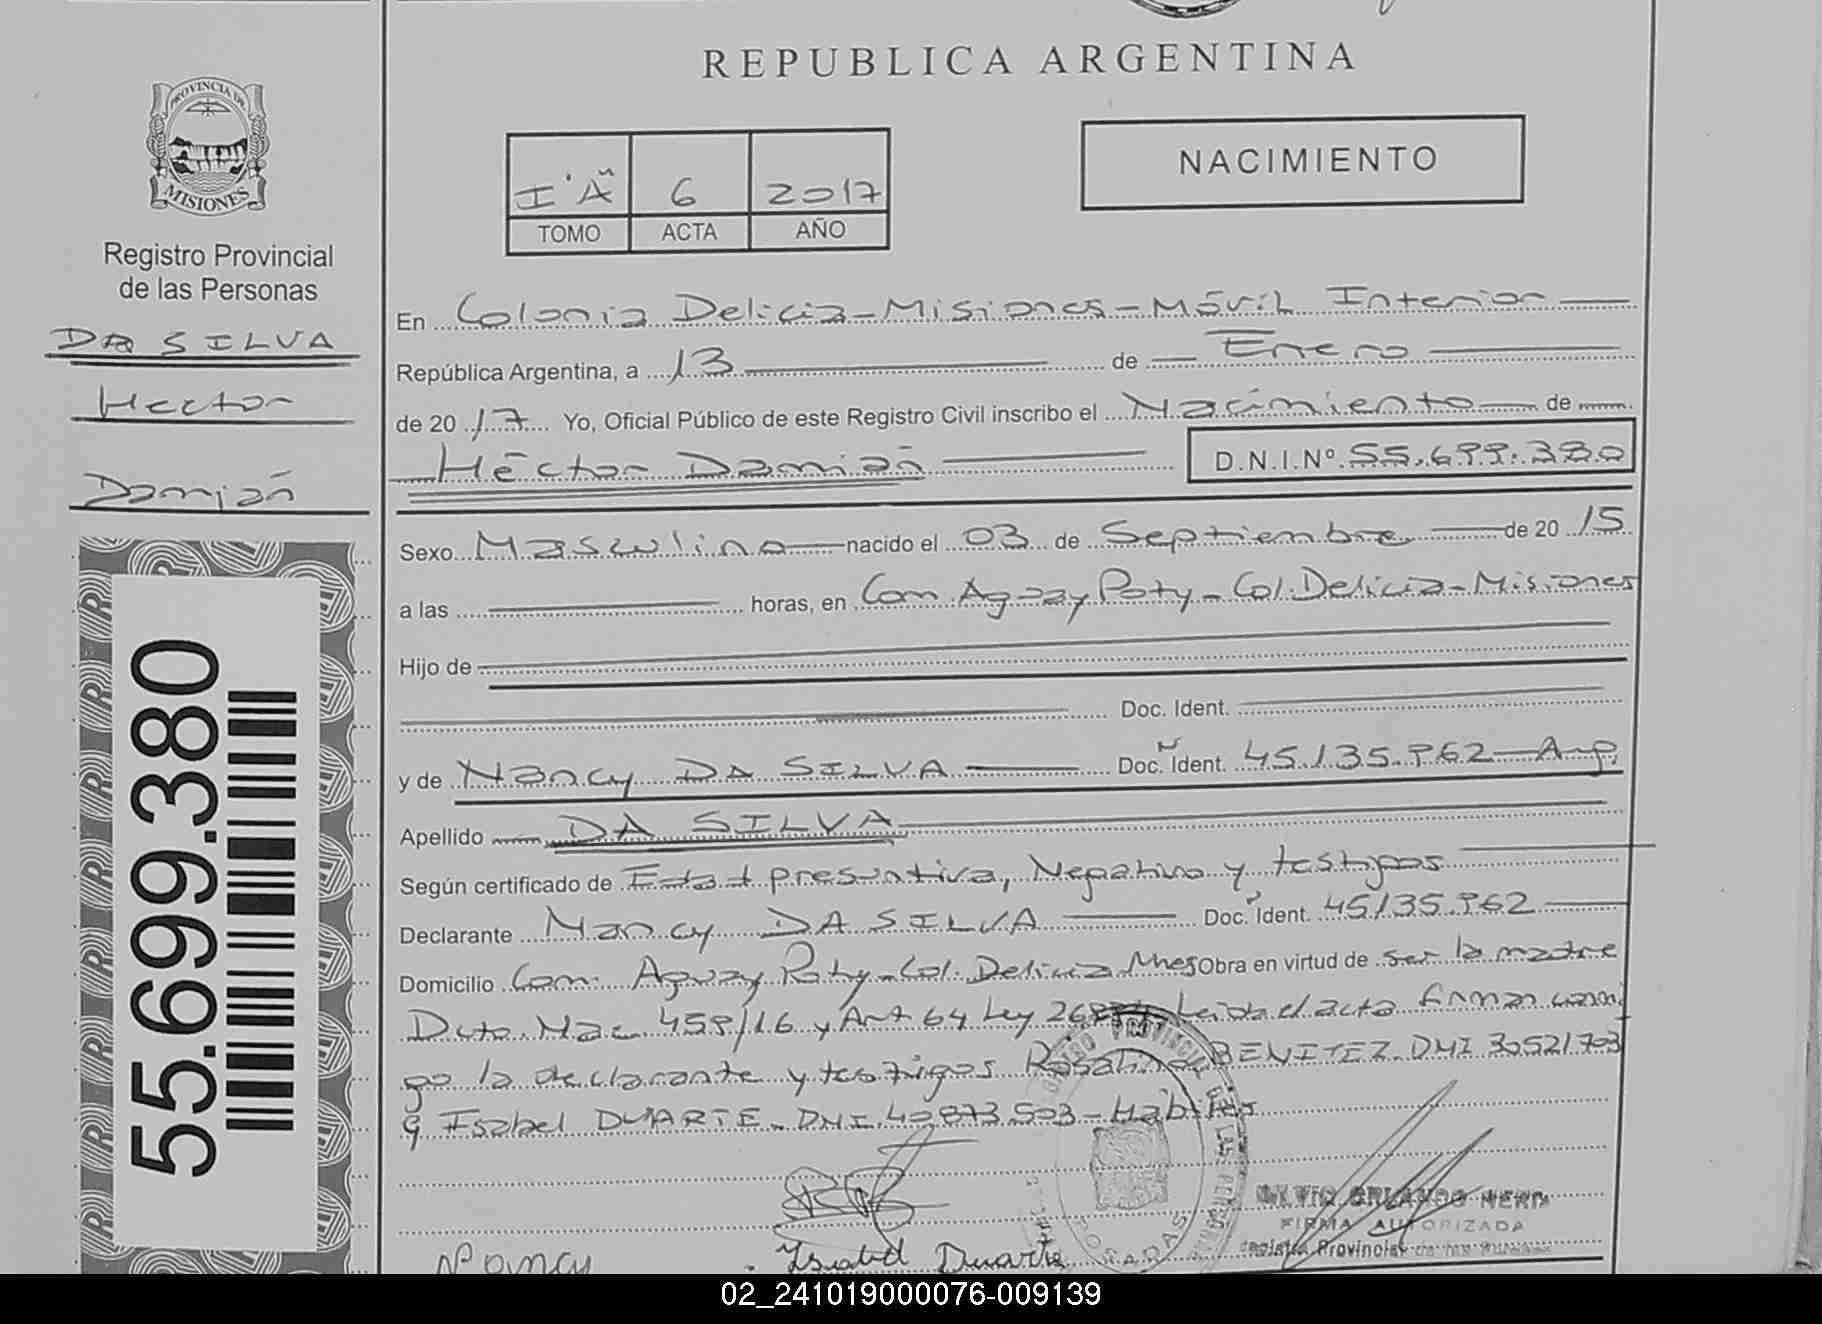 REPUBLICA ARGENTINA
PROVINCIA DE
MISIONES
Registro Provincial
de las Personas
DA SILVA
Hector
Damián
55.699.380
I "A" 6 2017
TOMO ACTA AÑO
NACIMIENTO
En Colonia Delicia - Misiones - Móvil Interior
República Argentina, a 13 de Enero
de 20 17 Yo, Oficial Público de este Registro Civil inscribo el Nacimiento de
Héctor Damián D.N.I.Nº 55.699.380
Sexo Masculino nacido el 03 de Septiembre de 20 15
a las horas, en Com. Aguay Poty - Col. Delicia - Misiones
Hijo de
Doc. Ident.
y de Nancy DA SILVA Doc. Ident. 45.135.962 - Arg.
Apellido DA SILVA
Según certificado de Edad presuntiva, Negativo y testigos
Declarante Nancy DA SILVA Doc. Ident. 45.135.962
Domicilio Com. Aguay Poty - Col. Delicia Mnes Obra en virtud de ser la madre
Dcto. Nac. 459/16 y Art 64 Ley Leida el acta firman conmi
go la declarante y testigos Rosalino BENITEZ DNI 30521703
e Isabel DUARTE DNI 40.873.503 - Habiles
Nancy Isabel Duarte
FIRMA AUTORIZADA
Registro Provincial de las Personas
POSADAS
02_241019000076-009139